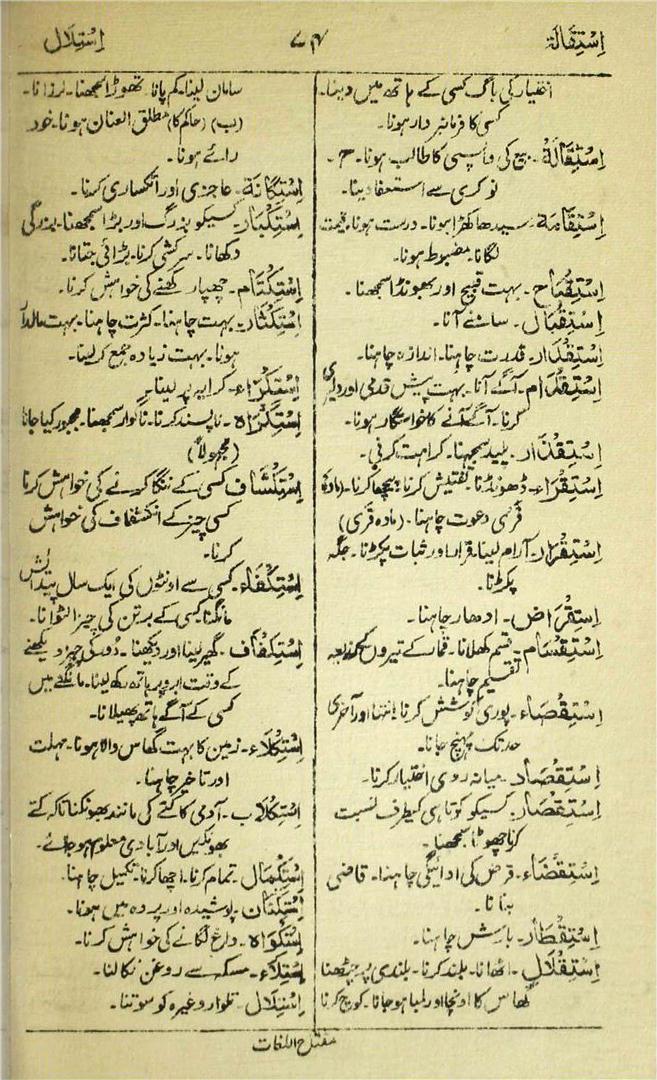 اِسْتِقَالَۃ ۷۴ اِسْتِلَال
اختیار کی باگ کسی کے ہاتھ میں دینا۔
کسی کا فرمانبردار ہونا۔
اِسْتِقَالَۃ۔ بیع کی واپسی کا طالب ہونا۔ ح۔
نوکری سے استعفا دینا۔
اِسْتِقَامَۃ۔ سیدھا کھڑا ہونا۔ درست ہونا۔ قیمت
لگانا۔ مضبوط ہونا۔
اِسْتِقْبَاح۔ بہت قبیح اور بھونڈا سمجھنا۔
اِسْتِقْبَال۔ سامنے آنا۔
اِسْتِقْدَار۔ قدرت چاہنا۔ اندازہ چاہنا۔
اِسْتِقْدَام۔ آگے آنا۔ بہت پیش قدمی اور دلیری
کرنا۔ آگے آنے کا خواستگار ہونا۔
اِسْتِقْذَار۔ پلید سمجھنا۔ کراہت کرنی۔
اِسْتِقْرَاء۔ ڈھونڈنا۔ تفتیش کرنا۔ پیچھا کرنا۔ (مادہ
قرء) دعوت چاہنا۔ (مادہ قری)
اِسْتِقْرَار۔ آرام لینا۔ قرار اور ثبات پکڑنا۔ جگہ
پکڑنا۔
اِسْتِقْرَاض۔ ادھار چاہنا۔
اِسْتِقْسَام۔ قسم کھلانا۔ قمار کے تیروں کے ذریعہ
تقسیم چاہنا۔
اِسْتِقْصَاء۔ پوری کوشش کرنا۔ انتہا اور آخری
حد تک پہنچ جانا۔
اِسْتِقْصَاد۔ میانہ روی اختیار کرنا۔
اِسْتِقْصَار۔ کسیکو کوتاہی کیطرف نسبت
کرنا۔ چھوٹا سمجھنا۔
اِسْتِقْضَاء۔ قرض کی ادائیگی چاہنا۔ قاضی
بنانا۔
اِسْتِقْطَار۔ بارش چاہنا۔
اِسْتِقْلَال۔ اٹھانا۔ بلند کرنا۔ بلندی پر چڑھنا
گھاس کا اونچا اور لمبا ہو جانا۔ کوچ کرنا
سامان لینا۔ کم پانا۔ تھوڑا سمجھنا۔ لرزانا۔
(ب) (حاکم کا) مطلق العنان ہونا۔ خود
رائے ہونا۔
اِسْتِکَانَۃ۔ عاجزی اور انکساری کرنا۔
اِسْتِکْبَار۔ کسیکو بزرگ اور بڑا سمجھنا۔ بزرگی
دکھانا۔ سرکشی کرنا۔ بڑائی جتانا۔
اِسْتِکْتَام۔ چھپا رکھنے کی خواہش کرنا۔
اِسْتِکْثَار۔ بہت چاہنا۔ کثرت چاہنا۔ بہت مالدار
ہونا۔ بہت زیادہ جمع کر لینا۔
اِسْتِکْرَاء۔ کرایہ پر لینا۔
اِسْتِکْرَاہ۔ ناپسند کرنا۔ ناگوار سمجھنا۔ مجبور کیا جانا
(مجہولاً)
اِسْتِکْشَاف کسی کے ننگا کرنے کی خواہش کرنا
کسی چیز کے انکشاف کی خواہش
کرنا۔
اِسْتِکْفَاء۔ کسی سے اونٹوں کی ایک سال پیدائش
مانگنا۔ کسی کے برتن کی چیز الٹوانا۔
اِسْتِکْفَاف۔ گھیر لینا اور دیکھنا۔ دُور کی چیز دیکھنے
کے وقت ابرو پر ہاتھ رکھ لینا۔ مانگنے میں
کسی کے آگے ہاتھ پھیلانا۔
اِسْتِکْلَاء۔ زمین کا بہت گھاس والا ہونا۔ مہلت
اور تاخیر چاہنا۔
اِسْتِکْلَاب۔ آدمی کا کتے کی مانند بھونکنا تاکہ کتے
بھونکیں اور آبادی معلوم ہو جائے۔
اِسْتِکْمَال۔ تمام کرنا۔ اچھا کرنا۔ تکمیل چاہنا۔
اِسْتِکْنَان۔ پوشیدہ اور پردہ میں ہونا۔
اِسْتِکْوَاء۔ داغ لگانے کی خواہش کرنا۔
اِسْتِلَاء۔ مسکہ سے روغن نکالنا۔
اِسْتِلَال۔ تلوار وغیرہ کو سوتنا۔
مفتاح اللغات